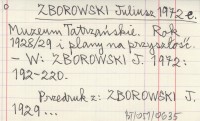 ZBOROWSKI Juliusz 1972 e.
Muzeum Tatrzańskie. Rok
1928/29 i plany na przyszłość.
- W: ZBOROWSKI J. 1972:
192-220.
Przedruk z: ZBOROWSKI J.
1929...